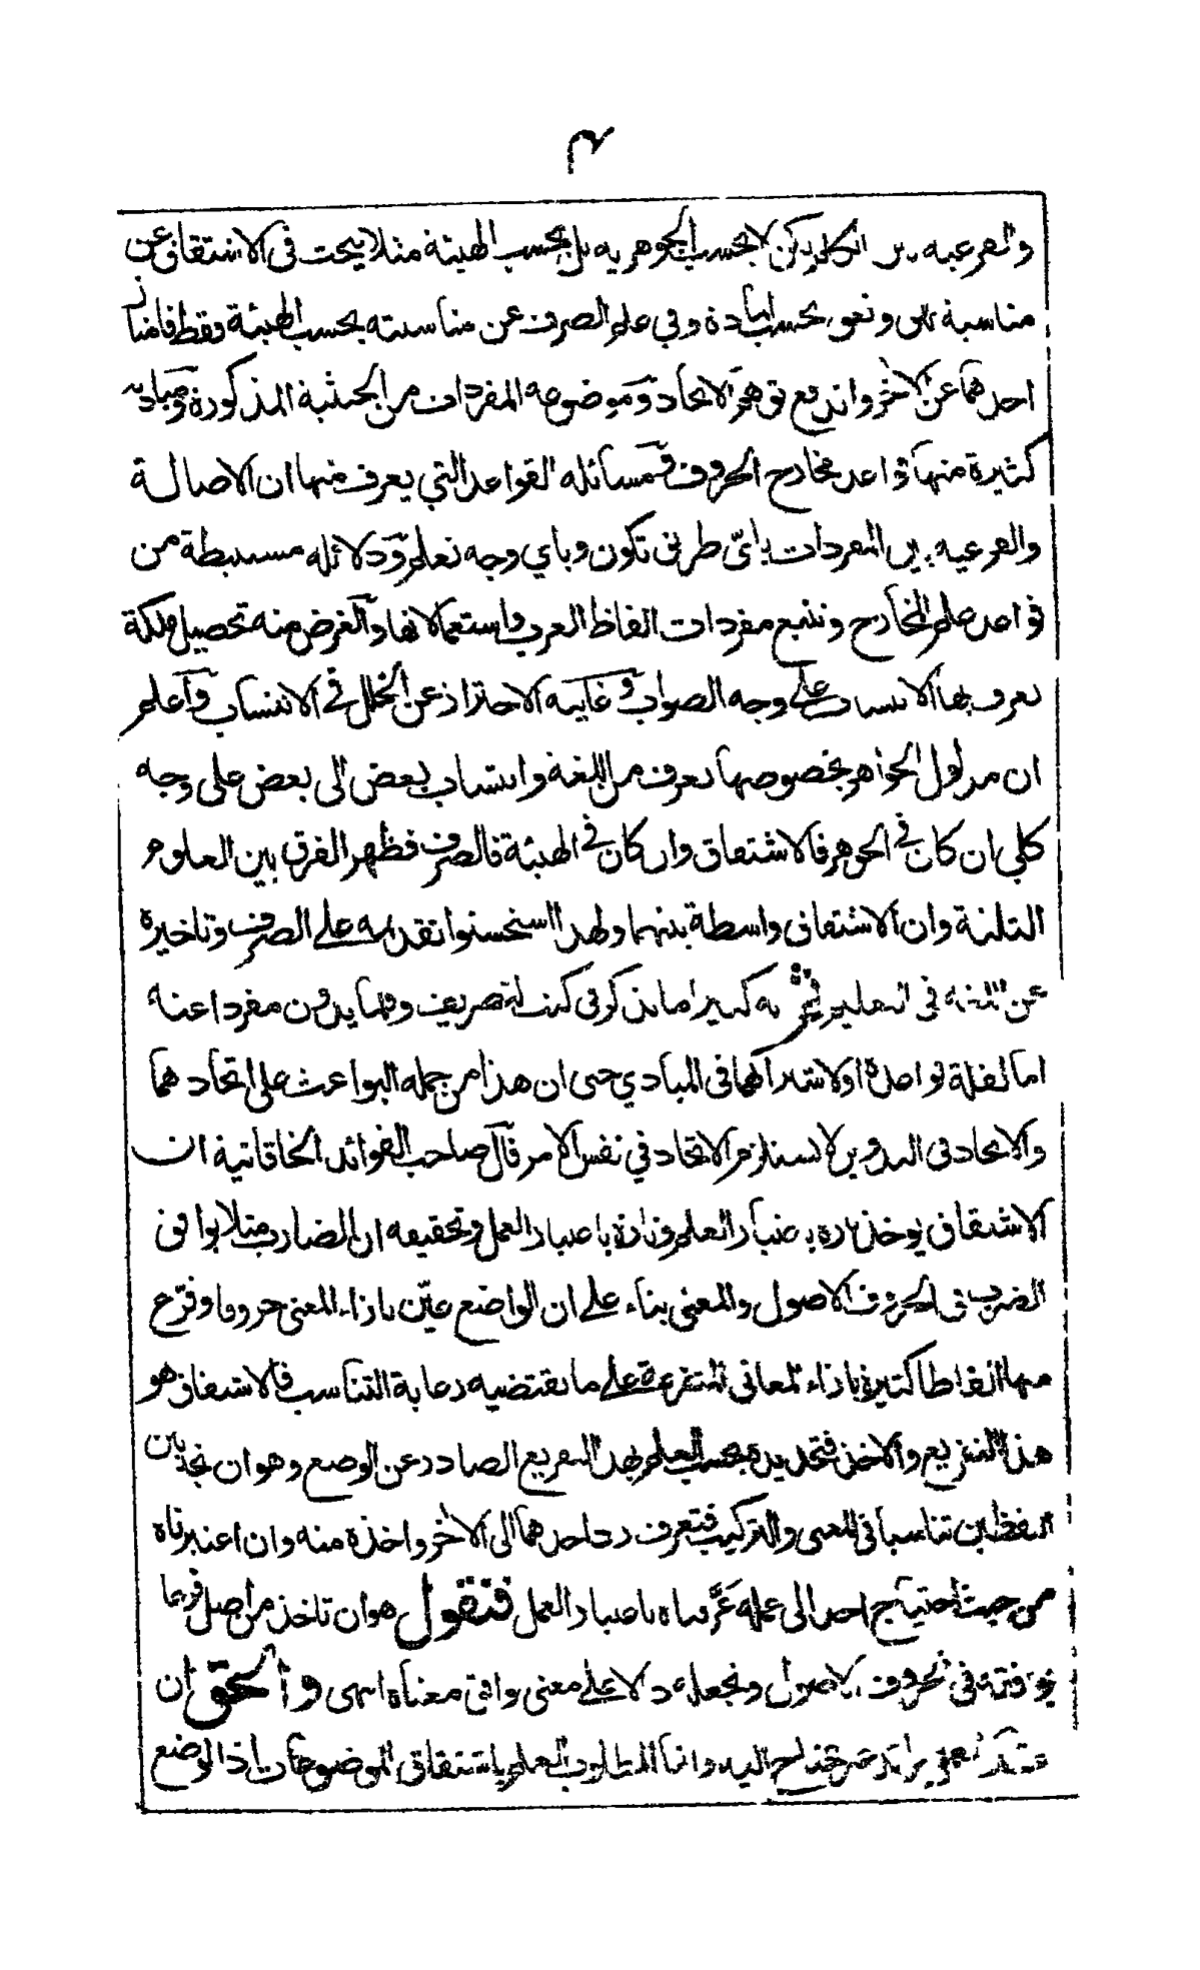 ٣
والفرعية بين الكلم لكن لا بحسب الجوهرية بل بحسب الهيئة مثلا يبحث في الاشتقاق عن
مناسبة نهق ونعق بحسب المادة وفي علم الصرف عن مناسبته بحسب الهيئة فقط فامتاز
احدهما عن الاخر واندفع توهم الاتحاد وموضوعه المفردات من الحيثية المذكورة ومباديه
كثيرة منها قواعد مخارج الحروف ومسائله القواعد التي يعرف منها ان الاصالة
والفرعية بين المفردات باي طريق تكون وباي وجه تعلم ودلائله مستنبطة من
قواعد علم المخارج وتتبع مفردات الفاظ العرب واستعمالاتها والغرض منه تحصيل ملكة
يعرف بها الانتساب على وجه الصواب وغايته الاحتراز عن الخلل في الانتساب واعلم
ان مدلول الجواهر بخصوصها يعرف من اللغة وانتساب بعض الى بعض على وجه
كلي ان كان في الجوهر فالاشتقاق وان كان في الهيئة فالصرف فظهر الفرق بين العلوم
الثلثة وان الاشتقاق واسطة بينهما ولهذا استحسنوا تقديمه على الصرف وتاخيره
عن اللغة في التعليم ثم انه كثيرا ما يذكر في كتب التصريف وقلما يدون مفردا عنه
اما لقلة قواعده او لاشتراكهما في المبادي حتى ان هذا من جملة البواعث على اتحادهما
والاتحاد في التدوين لا يستلزم الاتحاد في نفس الامر قال صاحب الفوائد الخاقانية ان
الاشتقاق يوخذ تارة باعتبار العلم وتارة باعتبار العمل وتحقيقه ان الضارب مثلا يوافق
الضرب في الحروف الاصول والمعنى بناء على ان الواضع عيّن بازاء المعنى حروفا وفرّع
منها الفاظا كثيرة بازاء المعاني المتفرعة على ما يقتضيه رعاية التناسب فالاشتقاق هو
هذا التفريع والاخذ فتحديده بحسب العلم بهذا التفريع الصادر عن الوضع وهو ان تجد بين
اللفظين تناسبا في المعنى والتركيب فتعرف رد احدهما الى الاخر واخذه منه وان اعتبرناه
من حيث احتياج احد الى عمله عرّفناه باعتبار العمل فنقول هو ان تاخذ من اصل فرعا
يوافقه في الحروف الاصول وتجعله دالا على معنى يوافق معناه انتهى والحق ان
اعتبار العمل زائد غير محتاج اليه وانما المطلوب العلم باشتقاق الموضوعات اذ الوضع